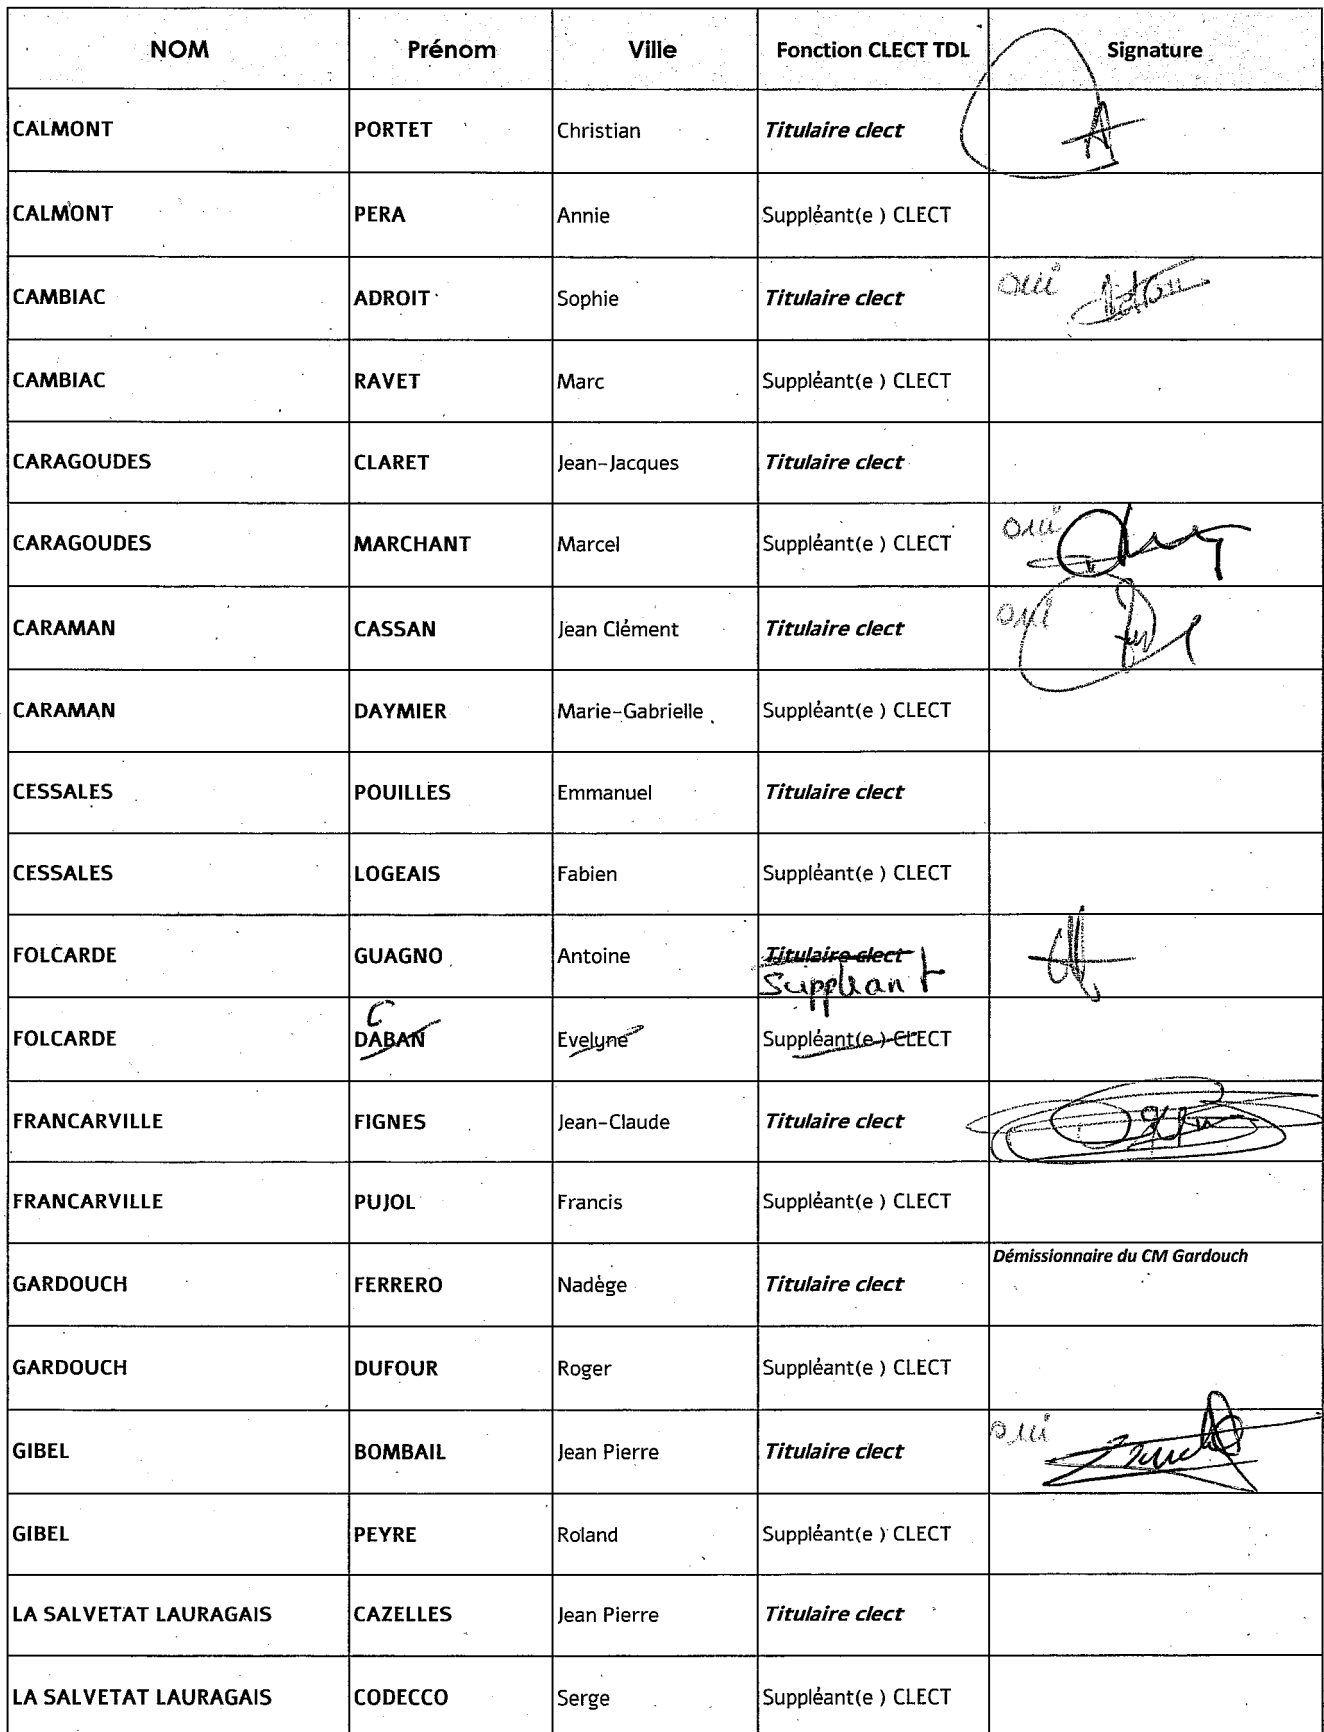 NOM Prénom Ville Fonction CLECT TDL Signature
CALMONT PORTET Christian Titulaire clect
CALMONT PERA Annie Suppléant(e ) CLECT
CAMBIAC ADROIT Sophie Titulaire clect oui
CAMBIAC RAVET Marc Suppléant(e ) CLECT
CARAGOUDES CLARET Jean-Jacques Titulaire clect
CARAGOUDES MARCHANT Marcel Suppléant(e ) CLECT oui
CARAMAN CASSAN Jean Clément Titulaire clect oui
CARAMAN DAYMIER Marie-Gabrielle Suppléant(e ) CLECT
CESSALES POUILLES Emmanuel Titulaire clect
CESSALES LOGEAIS Fabien Suppléant(e ) CLECT
FOLCARDE GUAGNO Antoine Titulaire clect
Suppléant
FOLCARDE DABAN Evelyne Suppléant(e ) CLECT
FRANCARVILLE FIGNES Jean-Claude Titulaire clect
FRANCARVILLE PUJOL Francis Suppléant(e ) CLECT
Démissionnaire du CM Gardouch
GARDOUCH FERRERO Nadège Titulaire clect
GARDOUCH DUFOUR Roger Suppléant(e ) CLECT
GIBEL BOMBAIL Jean Pierre Titulaire clect oui
GIBEL PEYRE Roland Suppléant(e ) CLECT
LA SALVETAT LAURAGAIS CAZELLES Jean Pierre Titulaire clect
LA SALVETAT LAURAGAIS CODECCO Serge Suppléant(e ) CLECT